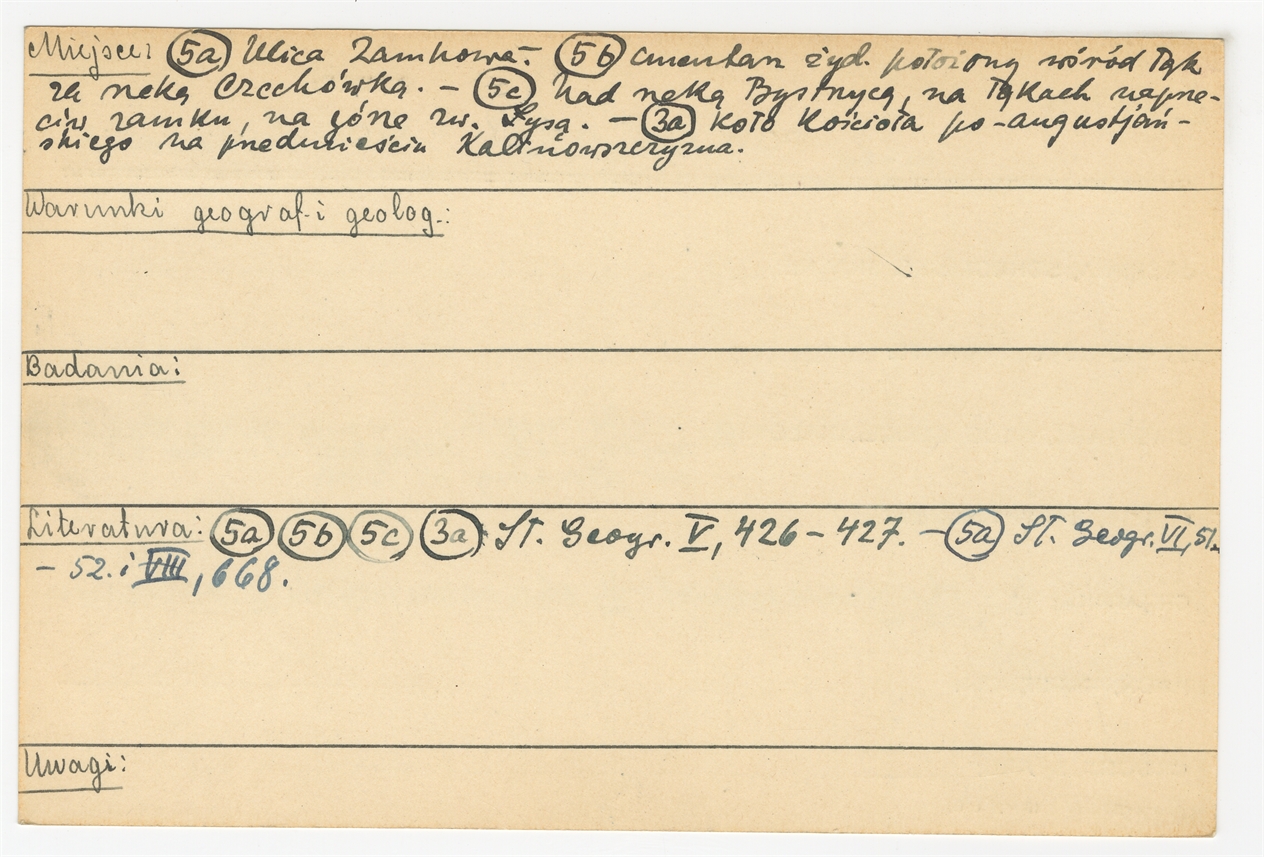 Miejsce: 5a Ulica Zamkowa. – 5b cmentarz żyd. położony wśród łąk
za rzeką Czechówką. – 5c Nad rzeką Bystrzycą, na łąkach naprze-
ciw zamku, na górze zw. Łysą. – 3a Koło kościoła po-augustjań-
skiego na przedmieściu Kalinowszczyzna.
Warunki geograf. i geolog.:
Badania:
Literatura: 5a 5b 5c 3a: Sł. Geogr. V, 426 – 427. – 5a Sł. Geogr. VI, 51.
– 52. i VIII, 668.
Uwagi: